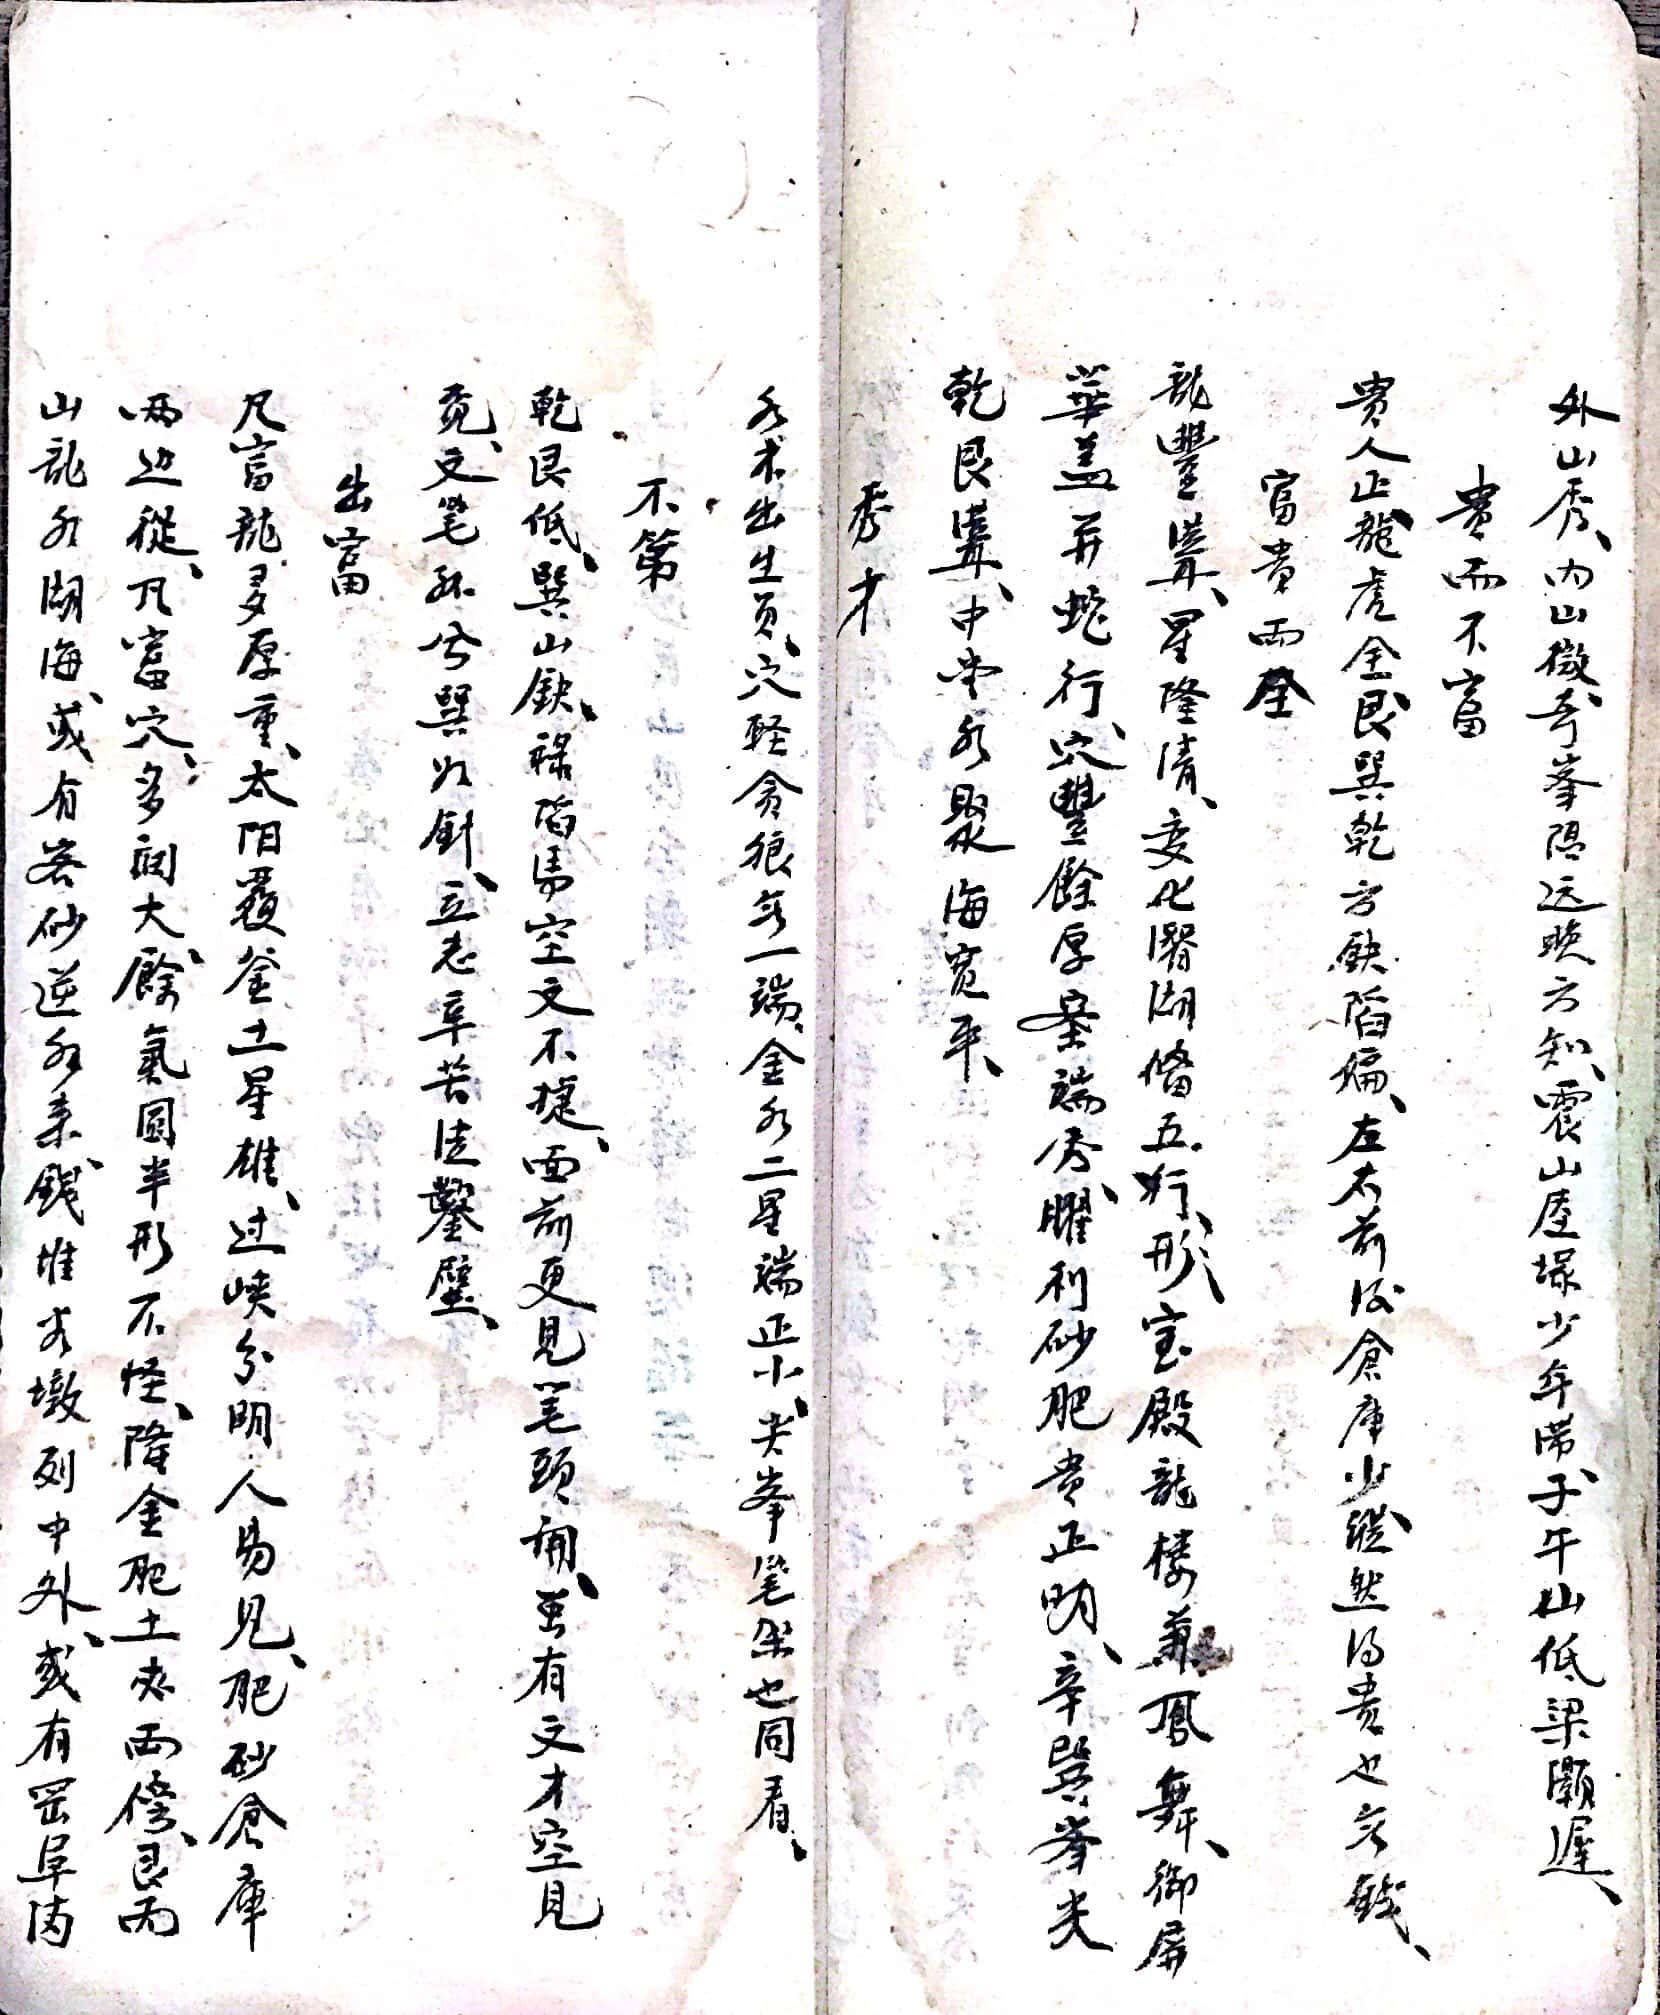 外山秀、内山微、奇峯隱远晚方知、震山𢊬塚少年滞、子午山低梁灝遲、
貴而不富
貴人正、龍虎全、艮巽乾方缺陷偏、左右前後倉庫少、縱然得貴也無錢、
富貴両全
龍豐厚、星隆清、变化潛湖俻五行形、宝殿龍楼兼鳳舞、御屏
華盖并蛇行、穴豐餘厚案端秀、曜利砂肥貴正明、辛巽峯尖
乾艮聳、中堂水聚海寛平、
秀才
水木出生員、穴軽貪狼無一端、金水二星端正小、尖峯笔架也同看、
不第
乾艮低、巽山缺、禄陷馬空文不捷、面前更見笔頭、虽有文才空見
竟、文笔孤兮巽如針、立志辛苦徒鑿壁、
出富
凡富龍多厚重、太阳覆釜土星雄、过峡分明人易見、肥砂倉庫
両边從、凡富穴、多闊大、餘氣圓半形不怪、隆金肥土夾両傍、艮丙
山龍水湖海、或有客砂逆水来、錢堆水墩列中外、或有罡阜両